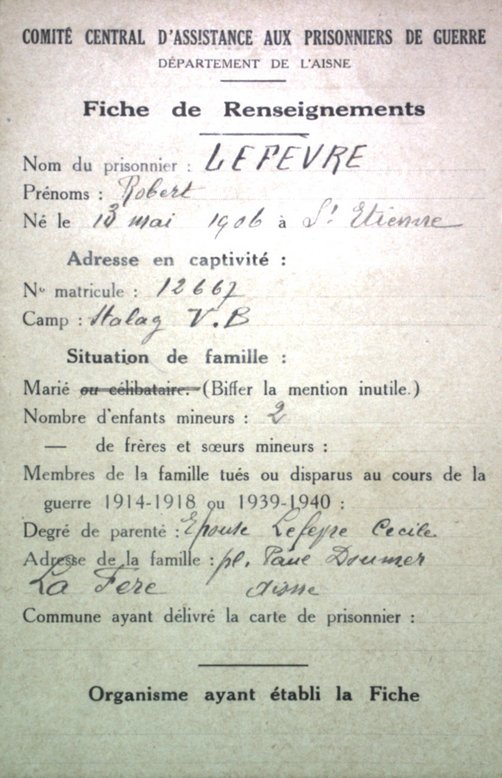 COMITÉ CENTRAL D'ASSISTANCE AUX PRISONNIERS DE GUERRE
DÉPARTEMENT DE L'AISNE
Fiche de Renseignements
Nom du prisonnier : LEFEVRE
Prénoms : Robert
Né le 13 mai 1906 à St Etienne
Adresse en captivité :
No matricule : 12667
Camp : Stalag V.B
Situation de famille :
Marié ou célibataire. (Biffer la mention inutile.)
Nombre d'enfants mineurs : 2
— de frères et sœurs mineurs :
Membres de la famille tués ou disparus au cours de la
guerre 1914-1918 ou 1939-1940 :
Degré de parenté : Epouse Lefevre Cecile
Adresse de la famille : pl. Paul Doumer
La Fere Aisne
Commune ayant délivré la carte de prisonnier :
Organisme ayant établi la Fiche